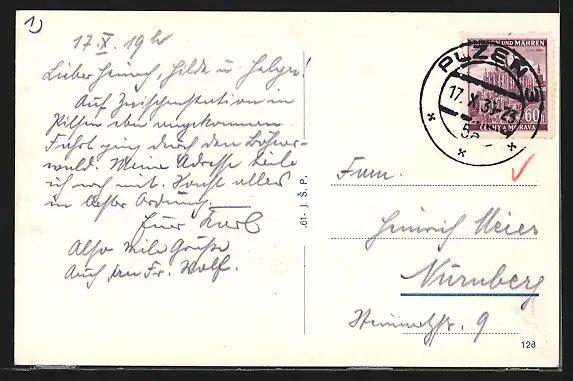 1)
17. X. 19h
Lieber Heinrich, Hilde u. Helga!
Auf Zwischenstation in
Pilsen eben angekommen.
Fahrt ging durch den Böhmer-
wald. Meine Adresse teile
ich noch mit. Sonst alles
in bester Ordnung.
Euer Karl
Also viele Grüße
Auch an Fr. Wolf.
61- J. Š. P.
BÖHMEN UND MÄHREN
60h
ČECHY A MORAVA
PLZEŇ
17. X. 39
Fam.
Heinrich Meier
Nürnberg
9
128